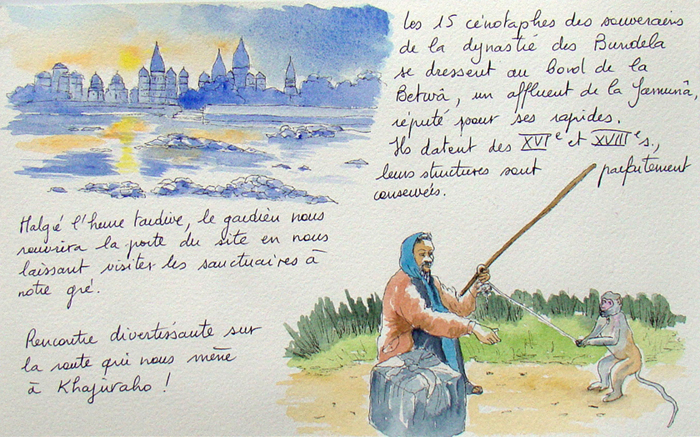 Les 15 cénotaphes des souverains
de la dynastie des Bundela
se dressent au bord de la
Betwâ, un affluent de la Jamunâ,
réputé pour ses rapides.
Ils datent des XVIe et XVIIIe s.,
leurs structures sont parfaitement
conservés.
Malgé l'heure tardive, le gardien nous
rouvrira la porte du site en nous
laissant visiter les sanctuaires à
notre gré.
Rencontre divertissante sur
la route qui nous mène
à Khajuraho !